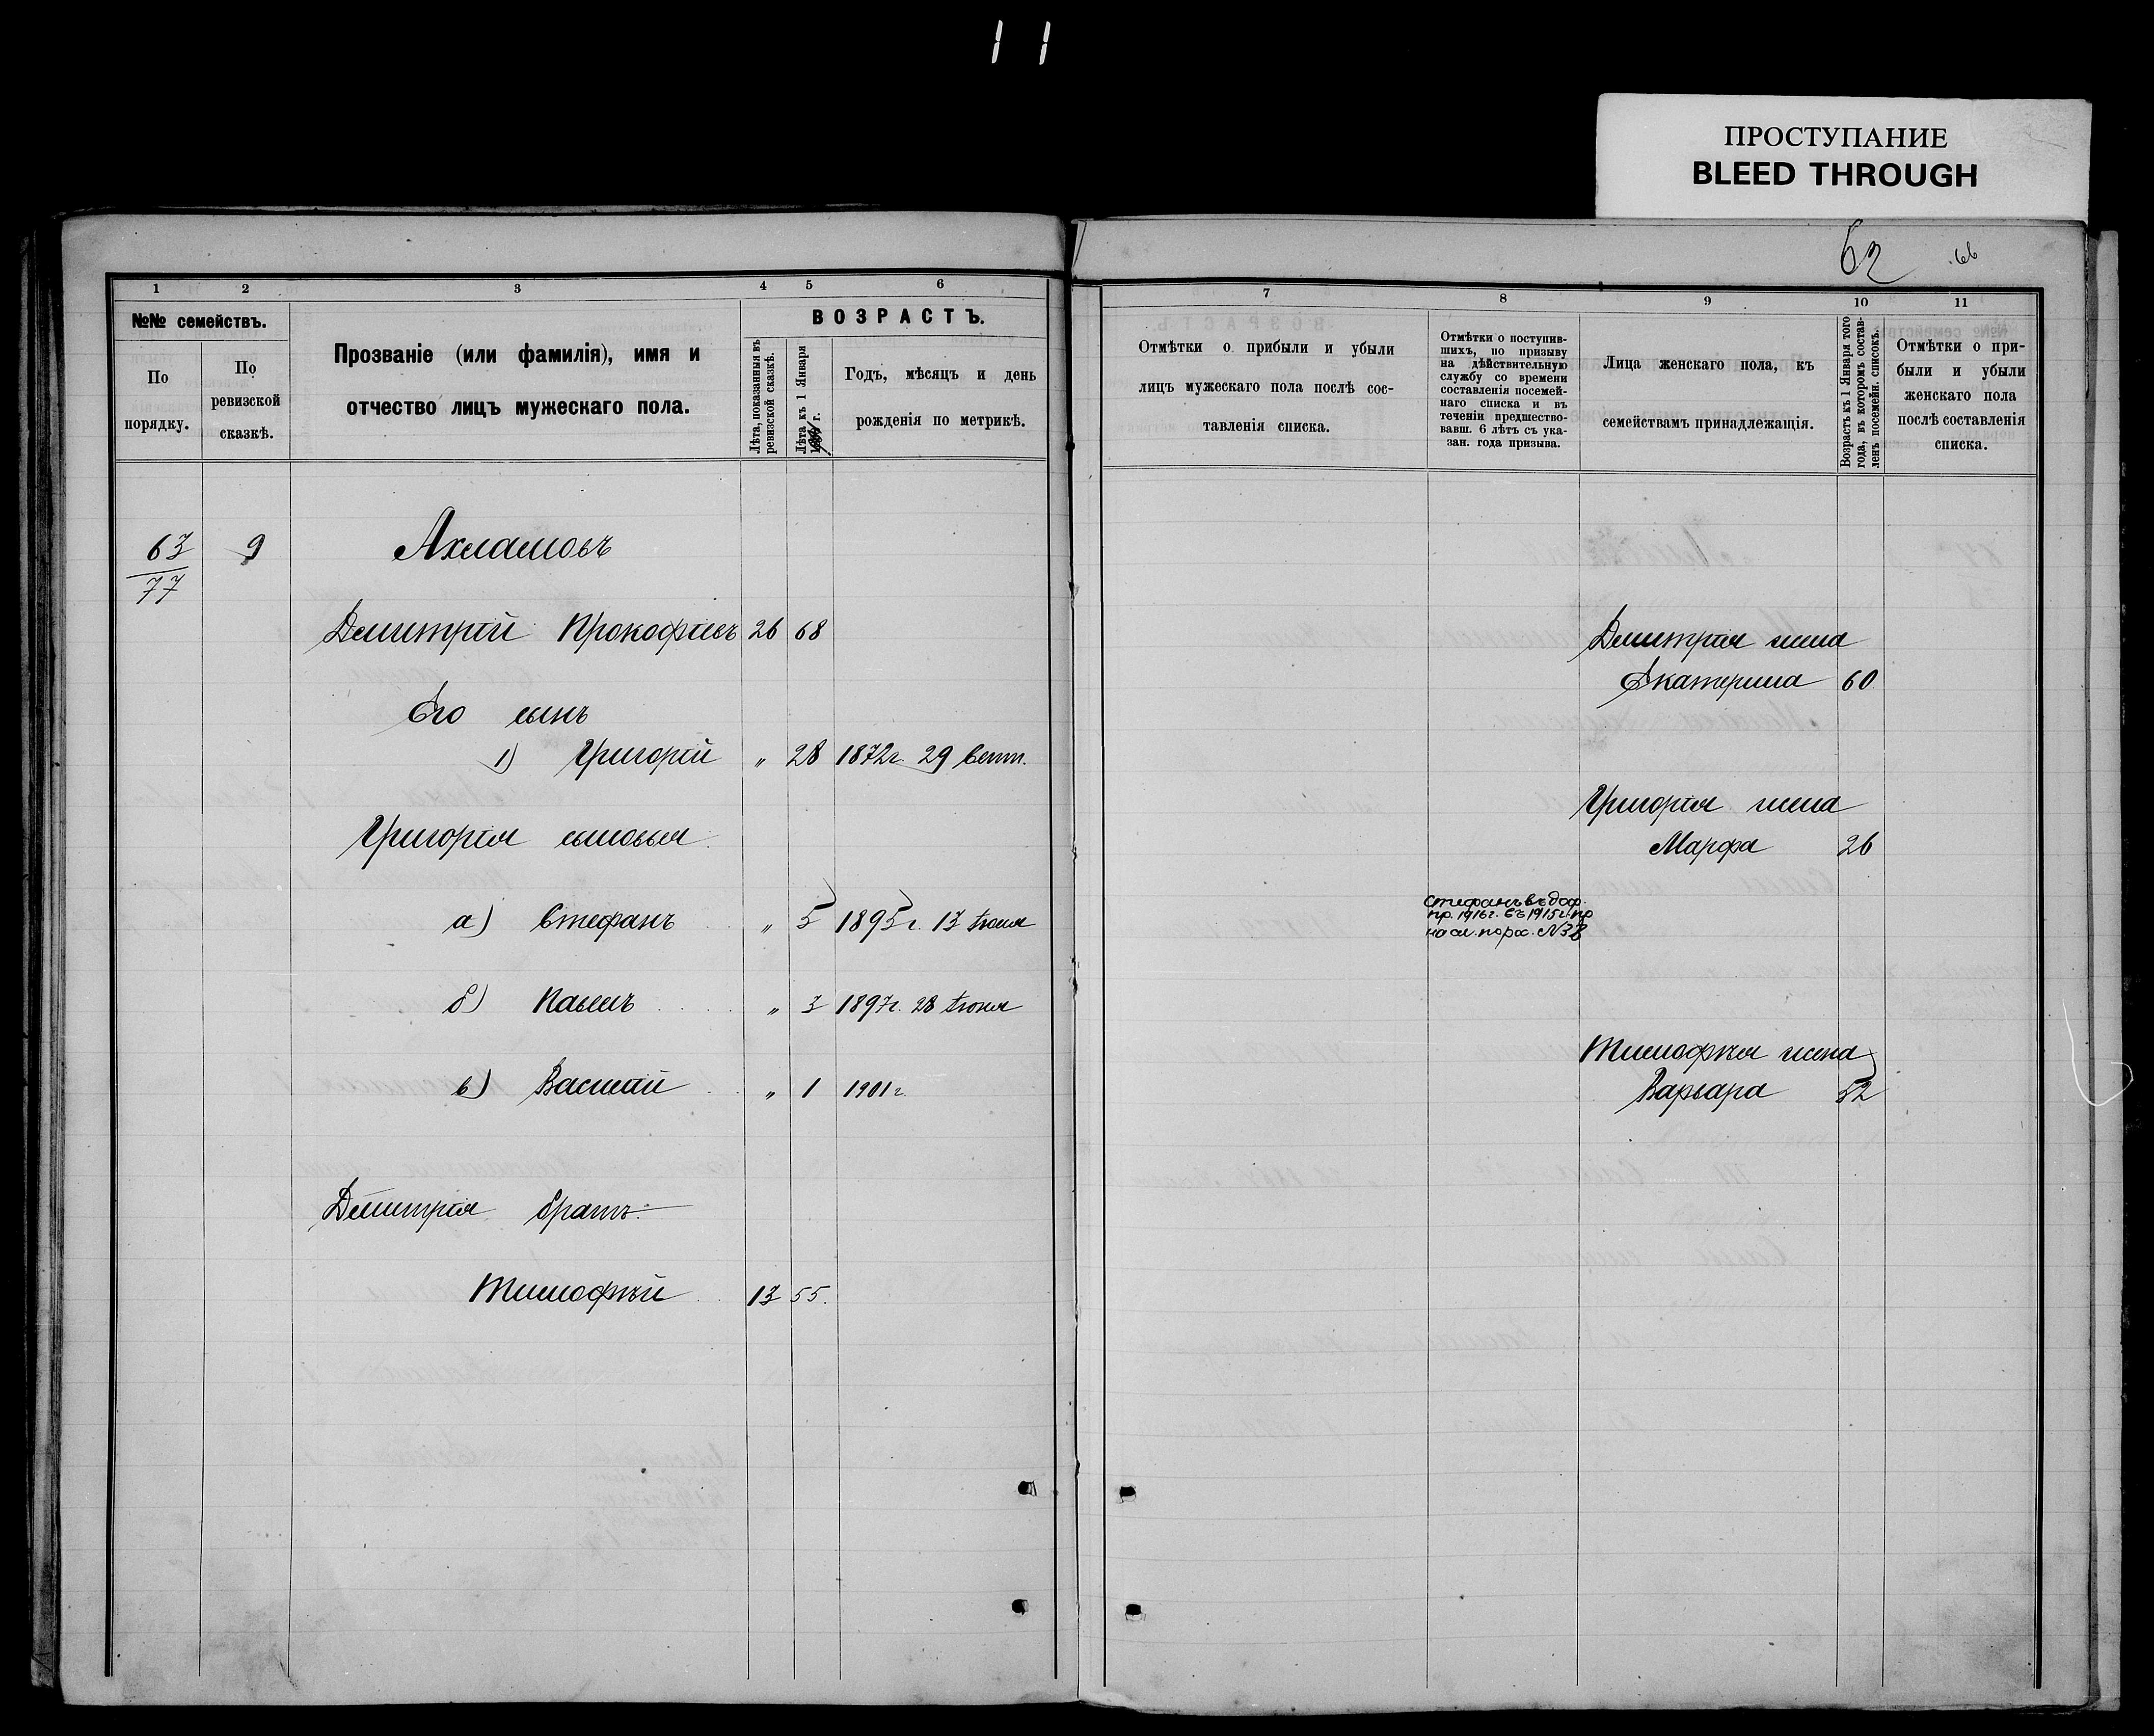 11
ПРОСТУПАНИЕ
BLEED THROUGH
62 66
1 2 3 4 5 6
№№ семействъ.
По порядку.
По ревизской сказкѣ.
Прозваніе (или фамилія), имя и
отчество лицъ мужескаго пола.
ВОЗРАСТЪ.
Лѣта, показанныя въ
ревизской сказкѣ.
Лѣта къ 1 Января
г.
Годъ, мѣсяцъ и день
рожденія по метрикѣ.
63 9 Ахламовъ
77
Димитрій Прокофіевъ 26 68
Его сынъ
1) Григорій „ 28 1872г. 29 Сент.
Григорія сыновья
а) Стефанъ „ 5 1895г. 13 Іюля
б) Павелъ „ 3 1897г. 28 Іюня
в) Василій „ 1 1901г.
Димитрія братъ
Тимофѣй 13 55.
7 8 9 10 11
Отмѣтки о прибыли и убыли
лицъ мужескаго пола послѣ сос-
тавленія списка.
Отмѣтки о поступив-
шихъ, по призыву
на дѣйствительную
службу со времени
составленія посемей-
наго списка и въ
теченіи предшество-
вавш. 6 лѣтъ съ ука-
зан. года призыва.
Лица женскаго пола, къ
семействамъ принадлежащія.
Возрастъ къ 1 Января того
года, въ которомъ состав-
ленъ посемейн. списокъ.
Отмѣтки о при-
были и убыли
женскаго пола
послѣ составленія
списка.
Димитрія жена
Екатерина 60
Григорія жена
Марфа 26
Стефанъ въ
пр. 1916г. 1915г.
Тимофѣя жена
Варвара 52